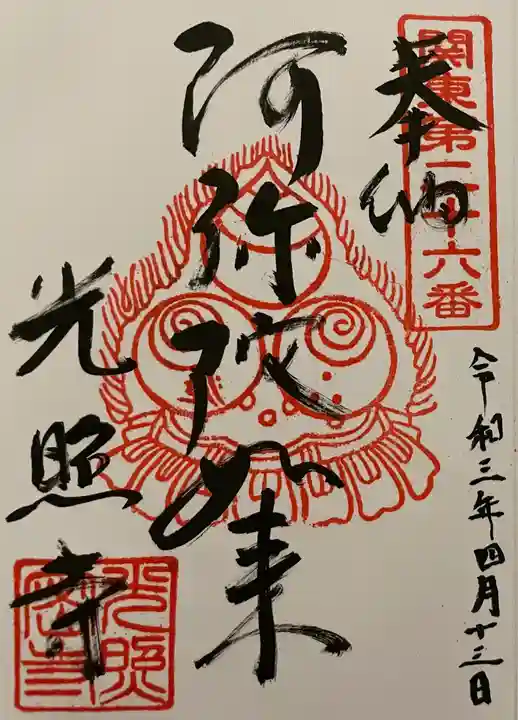 奉納
関東第二十六番
阿弥陀如来
光照寺
令和三年四月十三日